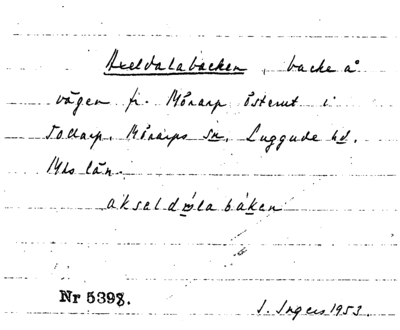 Axeldalabacken, backe å
vägen fr. Mörarp österut i
Tollarp. Mörarps sn. Luggude hd.
Mhs län.
aksaldɑla bakan
Nr 5398.
I. Ingers 1953.